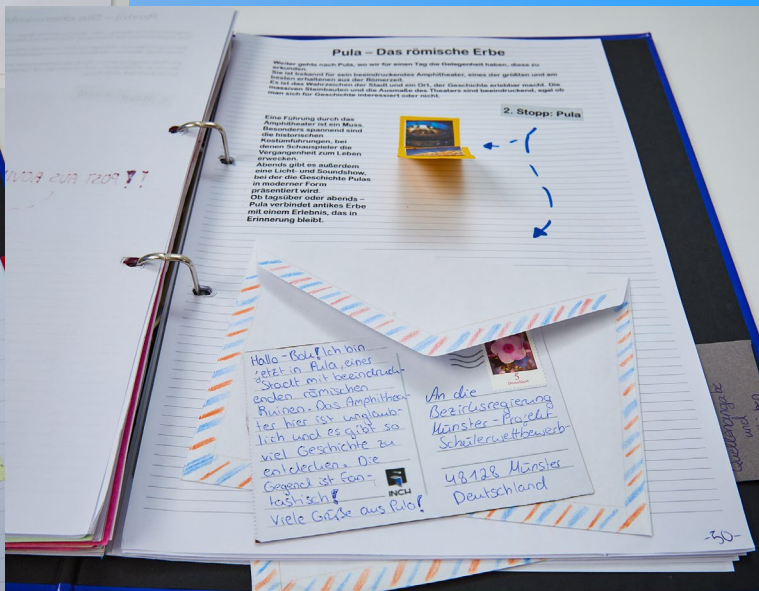 Pula – Das römische Erbe
Weiter gehts nach Pula, wo wir für einen Tag die Gelegenheit haben, diese zu
erkunden.
Sie ist bekannt für sein beeindruckendes Amphitheater, eines der größten und am
besten erhaltenen aus der Römerzeit.
Es ist das Wahrzeichen der Stadt und ein Ort, der Geschichte erlebbar macht. Die
massiven Steinbauten und die Ausmaße des Theaters sind beeindruckend, egal ob
man sich für Geschichte interessiert oder nicht.
2. Stopp: Pula
Eine Führung durch das
Amphitheater ist ein Muss.
Besonders spannend sind
die historischen
Kostümführungen, bei
denen Schauspieler die
Vergangenheit zum Leben
erwecken.
Abends gibt es außerdem
eine Licht- und Soundshow,
bei der die Geschichte Pulas
in moderner Form
präsentiert wird.
Ob tagsüber oder abends –
Pula verbindet antikes Erbe
mit einem Erlebnis, das in
Erinnerung bleibt.
Hallo-Bok! Ich bin
jetzt in Pula, einer
Stadt mit beeindruck-
enden römischen
Ruinen. Das Amphithea-
ter hier ist unglaub-
lich und es gibt so
viel Geschichte zu
entdecken. Die
Gegend ist fan-
tastisch!
Viele Grüße aus Pula!
INCH
5
Deutschland
An die
Bezirksregierung
Münster-Projekt
Schülerwettbewerb-
48128 Münster
Deutschland
-50-